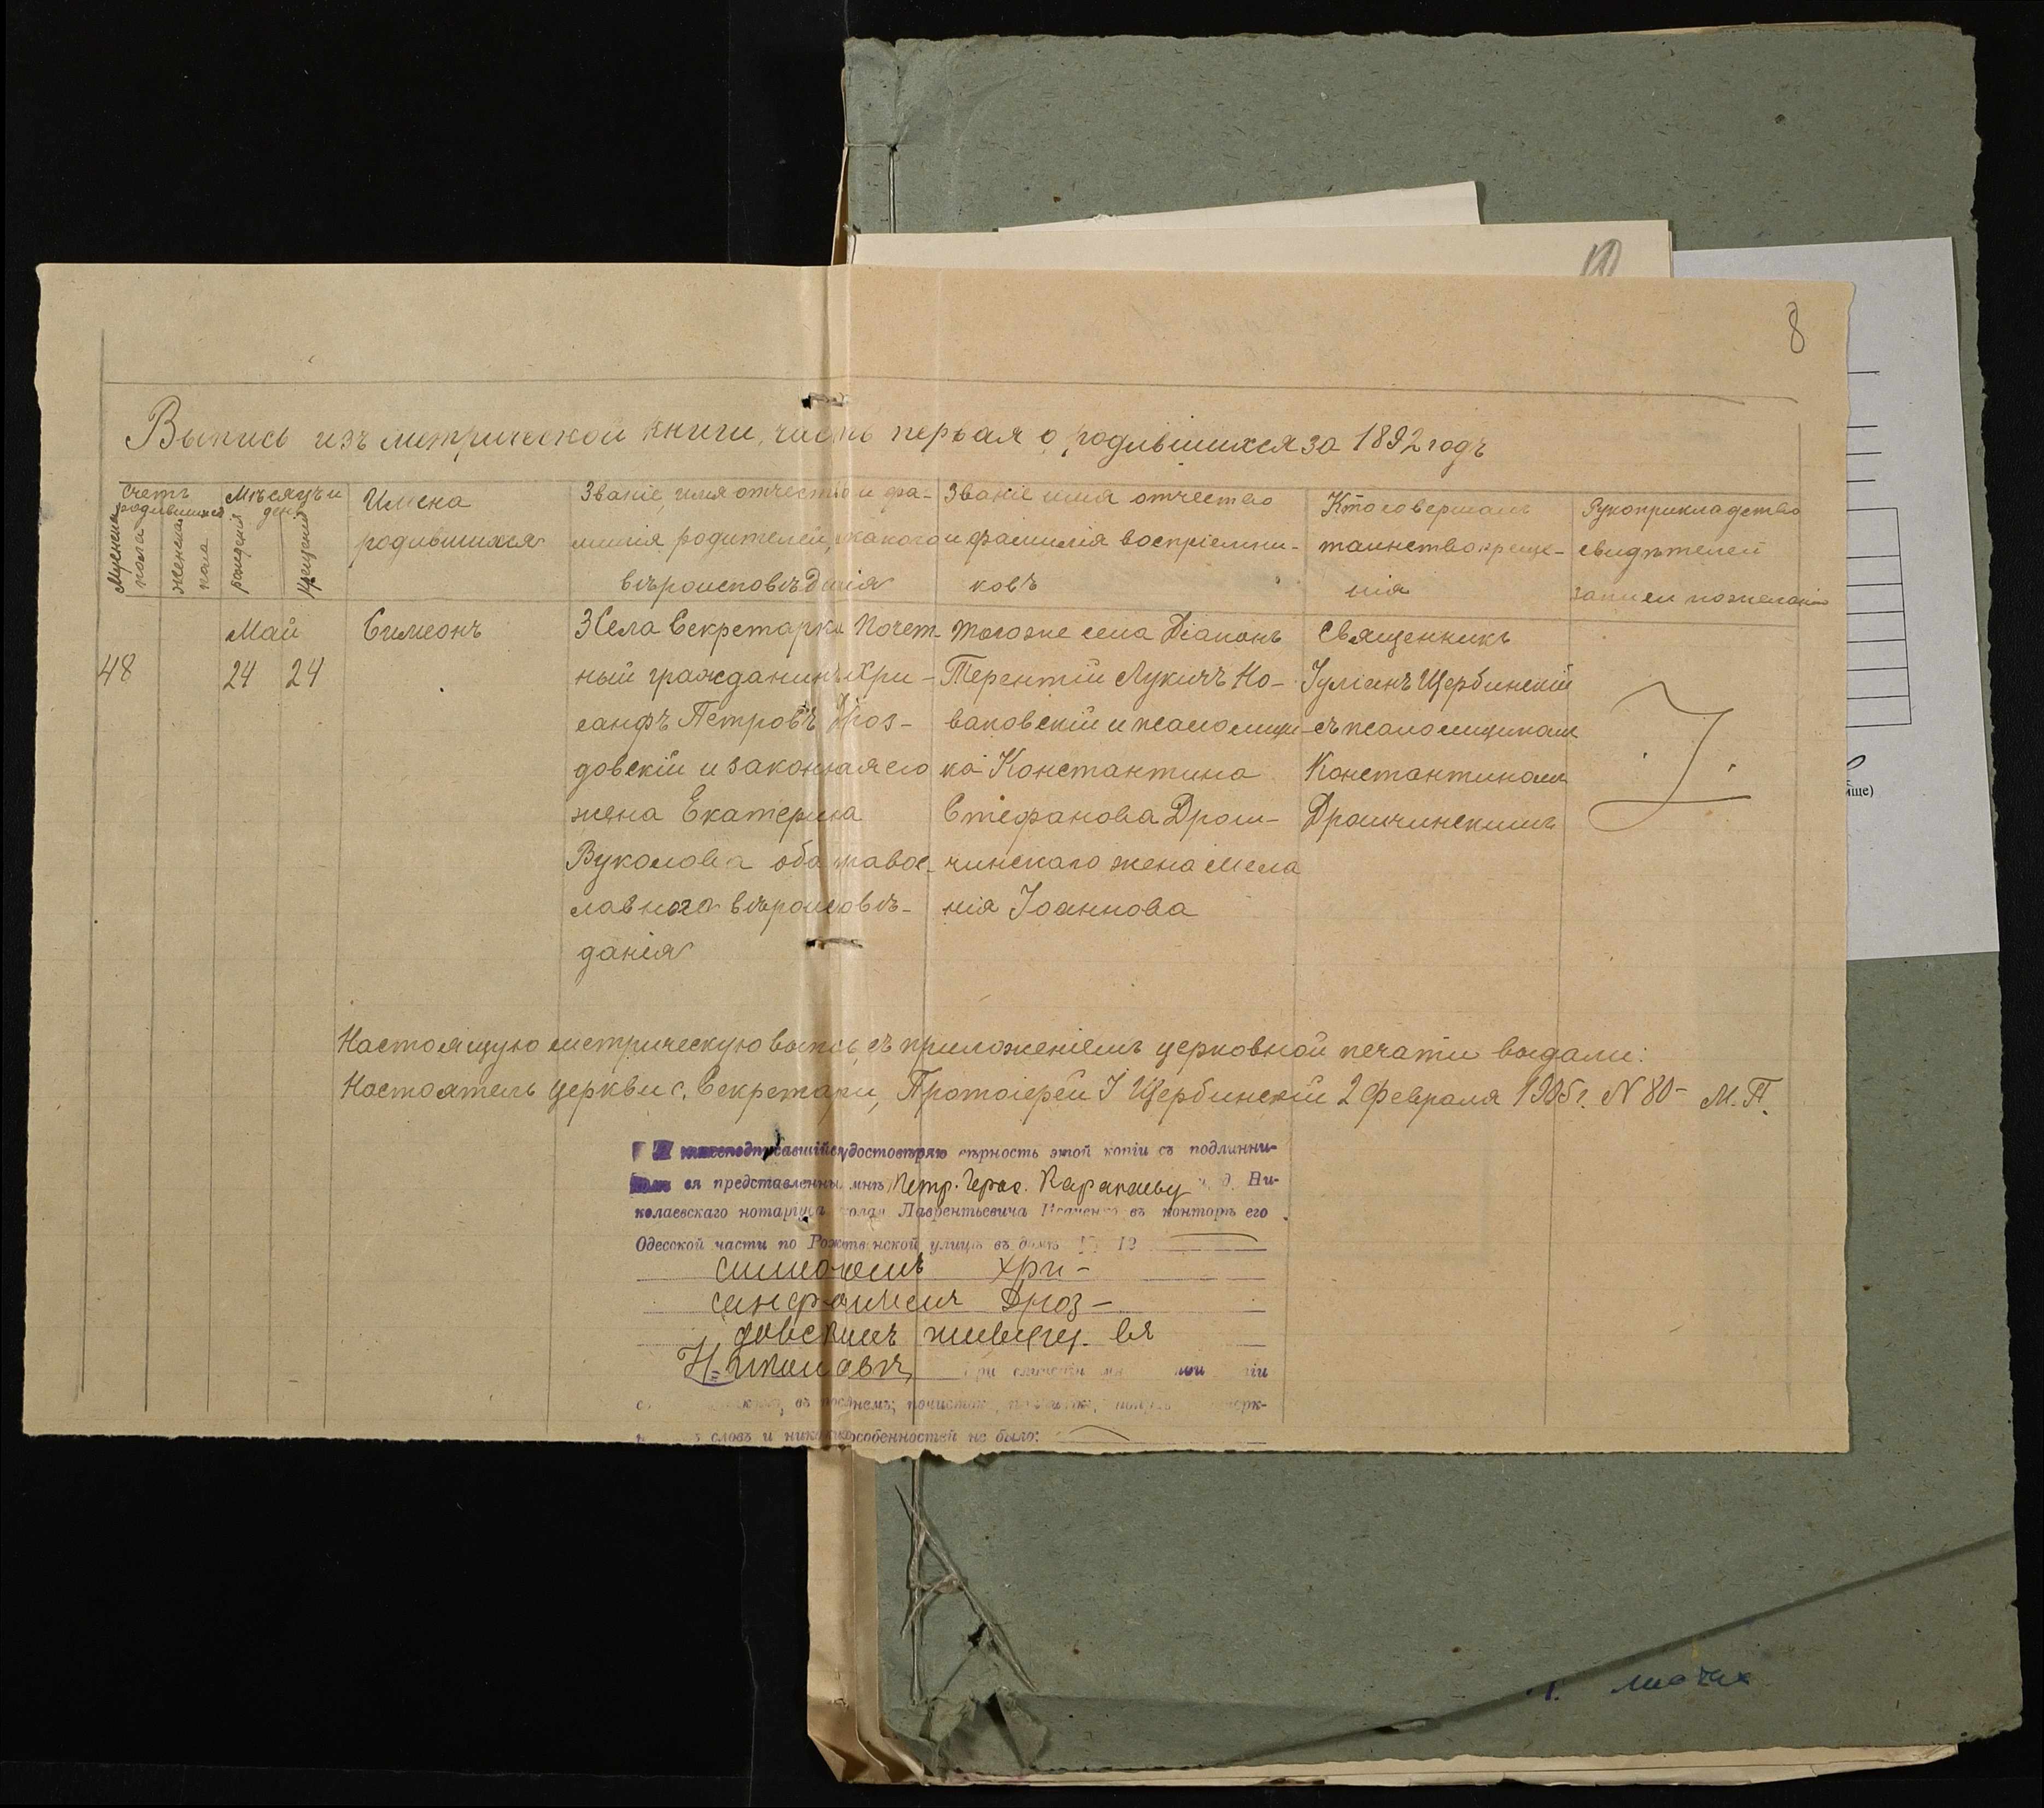 8
Выпись изъ метрической книги, часть первая о родившихся за 1892 годъ
Счетъ родившихся
Мужеска пола
Женска пола
Мѣсяцъ и день
рожденія
крещенія
Имена
родившихся
Званіе, имя, отчество и фа-
милія родителей, какого
вѣроисповѣданія
Званіе имя отчество
и фамилія воспріемни-
ковъ
Кто совершалъ
таинство креще-
нія
Рукоприкладство
свидѣтелей
записи по желанію
48
Май
24 24
Симеонъ
Села Секретарки Почет-
ный гражданинъ Хри-
санфъ Петровъ Дроз-
довскій и законная его
жена Екатерина
Вуколова оба правос-
лавнаго вѣроисповѣ-
данія
того же села Діаконъ
Терентій Лукичъ Но-
ваковскій и псаломщи-
ка Константина
Стефанова Дром-
чинскаго жена Мела
нія Іоаннова
Священникъ
Іуліанъ Щербинскій
съ псаломщикомъ
Константиномъ
Дромчинскимъ
Настоящую метрическую выпись, съ приложеніемъ церковной печати выдали:
Настоятель церкви с. Секретарки, Протоіерей І Щербинскій 2 февраля 1905 г. N 80- М.П.
нижеподписавшійся, удостовѣряю вѣрность этой копіи съ подлинни-
ея представленнымъ мнѣ, Петр. Герас. Каракашу Ни-
колаевскаго нотаріуса Лаврентьевича въ конторѣ его
Одесской части по Рождественской улицѣ въ домѣ 12
Симеономъ Хри-
санфовичемъ Дроз-
довскимъ живущ. въ
Николаевѣ, при сличеніи
въ послѣднемъ; почистокъ,
словъ и никакихъ особенностей не было: